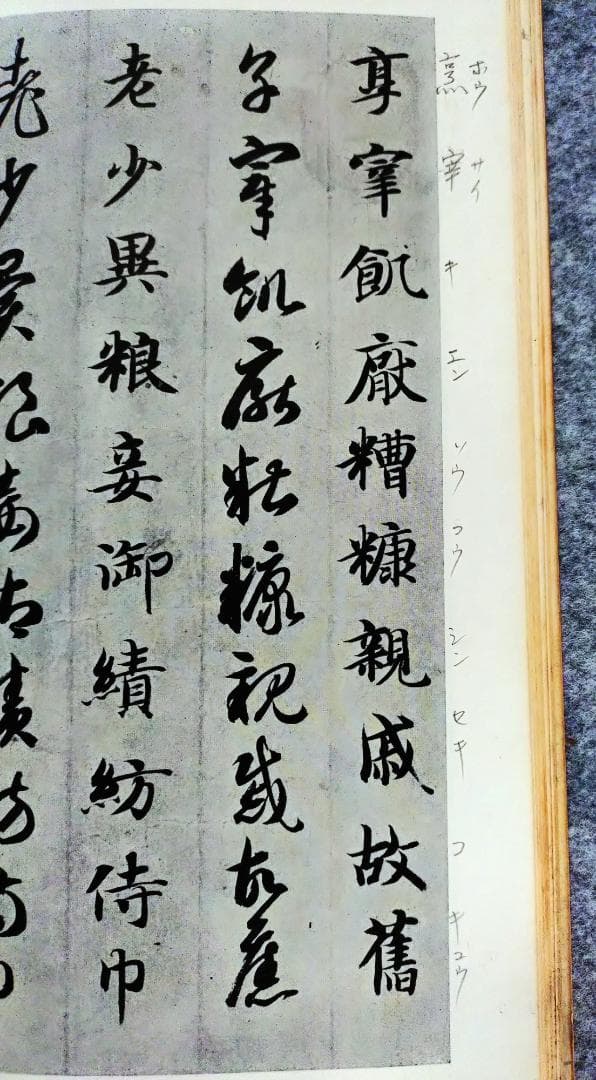 ホウ サイ キ エン ソウ コウ シン セキ コ キュウ
烹 宰
享宰飢厭糟糠親戚故舊
享宰飢厭糟糠親戚故舊
老少異粮妾御績紡侍巾
老少異粮妾